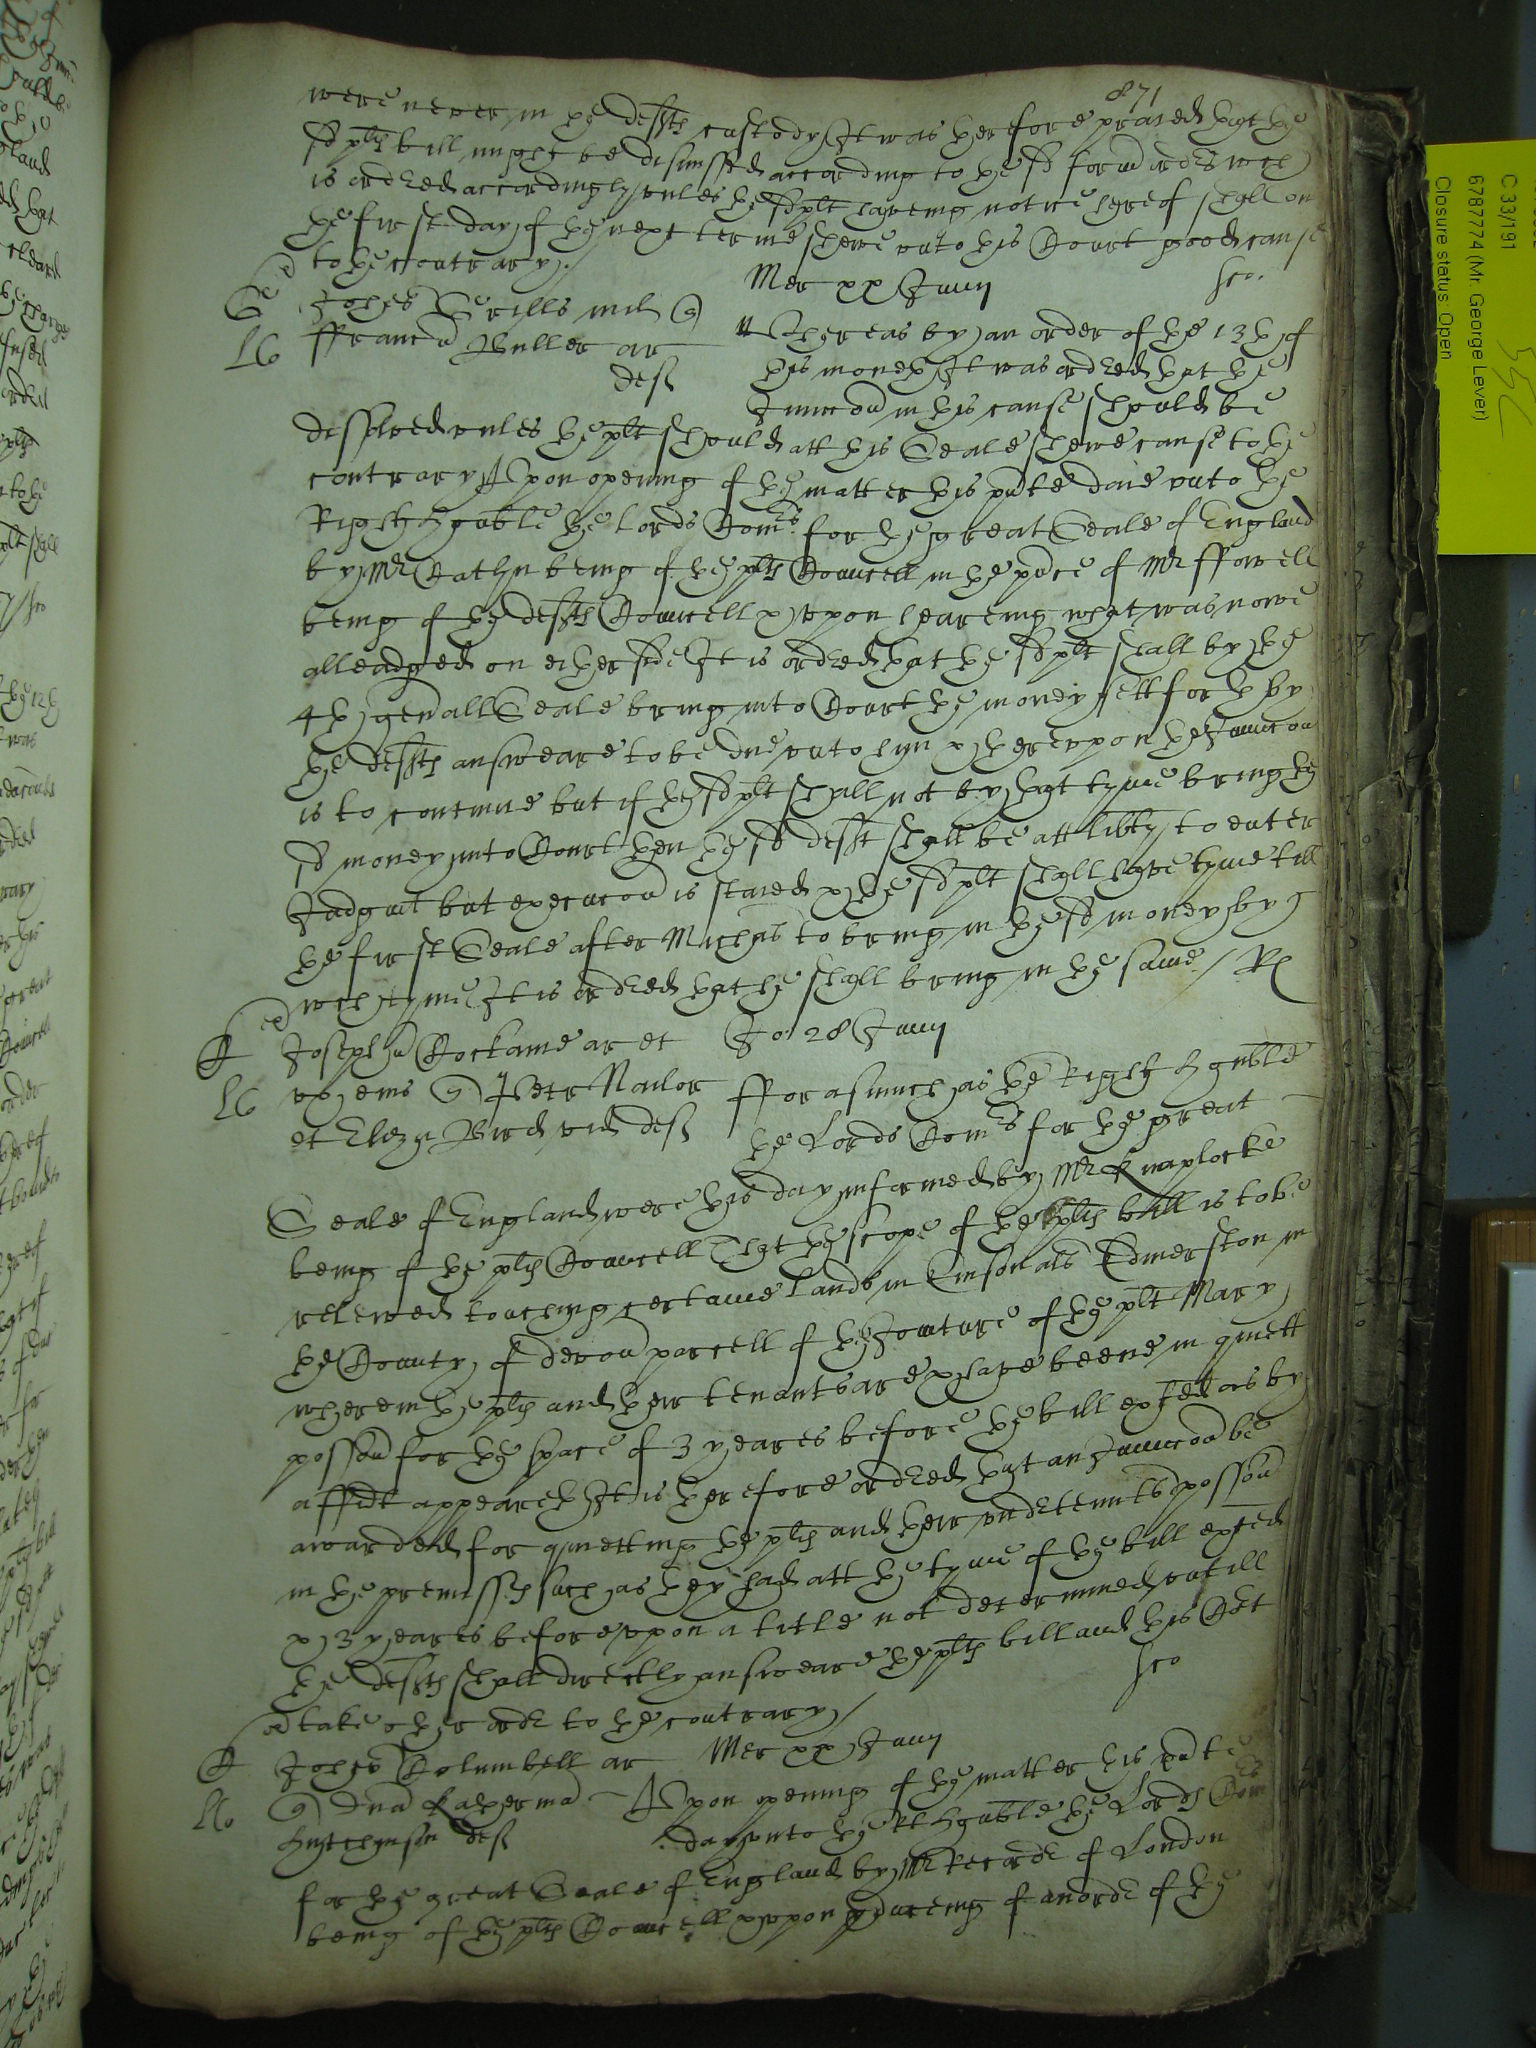 871
were never in the defts custody It was therefore praied that the
sd plts bill might be dismissed according to the sd form ordes wch
is ordred accordingly unles the sd plt haveing notice hereof shall on
the first day of the next terme shewe unto this Court good cause
to the contrary
Johes Grills mil Mer xx Junij
ffrancu Buller ar Whereas by an order of the 13th of
deft this moneth It was ordred that the
Iniuccon in this cause should be
dissolved unles the plt should att this Seale shewe cause to the
contrary Upon opening of the matter this pnte daie unto the
Right honble the Lords Comrs for the great Seale of England
by Mr being of the plts Councell in the pnce of Mr ffowell
being of the defts Councell & upon heareing what was nowe
alleadged on either side It is ordred that the sd plt shall by the
4th genall Seale bring into Court the money sett forth by
the defts answeare to be due unto him & thereupon the Iniuccon
is to continue but if the sd plt shall not by that tyme bring the
sd money into Court then the sd deft shall be att libty to enter
Judgmt but execucon is staied & the sd plt shall have tyme till
the first Seale after Michas to bring in the sd money by
wch tyme It is ordred that he shall bring in the same /
Josephu Cockame ar et Jo 28 Junij
ux eius Petr Nailor fforasmuch as the Right honble
et Eliza Bird vid deft the Lords Comrs for the great
Seale of England were this day informed by Mr Knaplocke
being of the plts Councell That the scope of the plts bill is to be
releived touching certaine lands in Kinson als Edmerston in
the County of devon parcell of the Jointure of the plt Mary
wherein the plts and their tenants are & have beene in quiett
posson for the space of 3 yeares before the bill exhted as by
affidt appeareth It is therefore ordred that an Iniuccon be
awarded for quietting the plts and their undrtennts posson
in the premisses such as they had att the tyme of the bill exhted
& 3 yeares before upon a title not determined untill
the defts shall directly answeare the plts bill and this Crt
take other ordr to the contrary /
Johes Columbell ar Mer xx Junij
dna Katherina Upon opening of the matter this pnte
Hutchinson deft day unto the Rt honble the Lords Comrs
for the great Seale of England by Mr Recordr of London
being of the plts Councell & upon pduceing of an ordr of the
C 33/191
6787774 (Mr. George Lever)
Closure status: Open